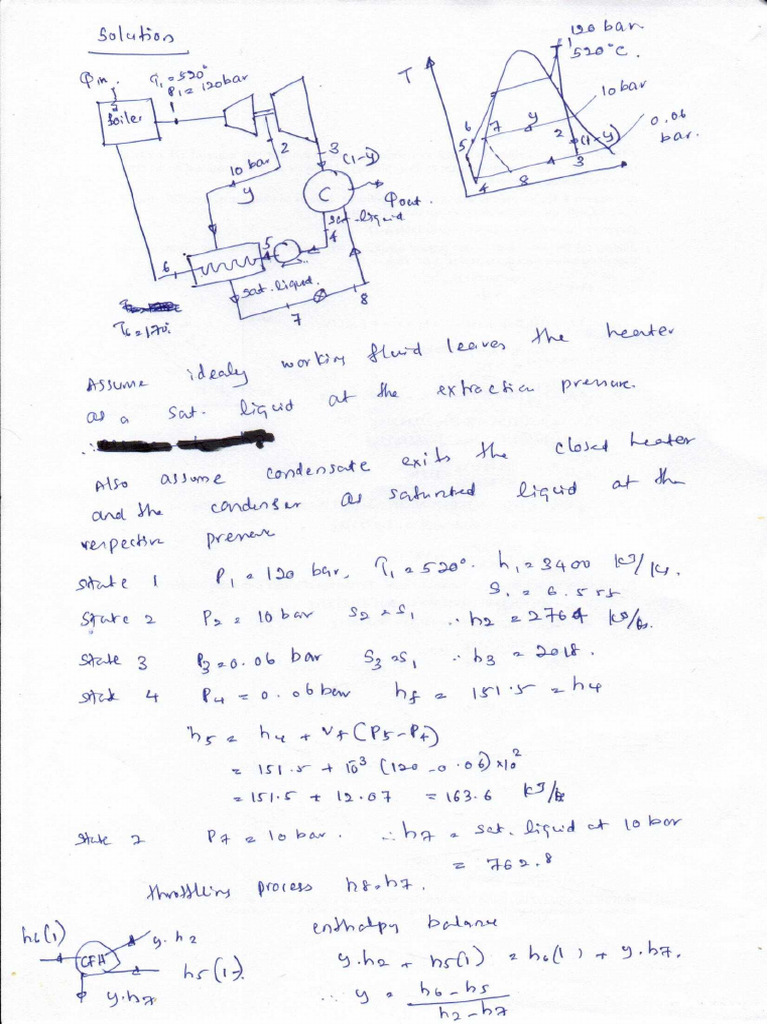 Solution
Qin.
T1 = 520°
P1 = 120bar
Boiler
2
3
(1-y)
10 bar
y
C
Qout.
sat-liquid
4
5
6
sat. liquid.
7
8
T6 = 170°.
T
120 bar.
1
520°C.
10 bar
0.06
bar.
6
5
7
y
2
(1-y)
3
4
8
Assume idealy working fluid leaves the heater
as a sat. liquid at the extraction pressure.
Also assume condensate exits the closed heater
and the condenser as saturated liquid at the
respective pressure
State 1 P1 = 120 bar, T1 = 520°. h1 = 3400 kJ/kg.
S1 = 6.555
State 2 P2 = 10 bar S2 = S1 ∴ h2 = 2764 kJ/kg.
State 3 P3 = 0.06 bar S3 = S1 ∴ h3 = 2018.
State 4 P4 = 0.06 bar hf = 151.5 = h4
h5 = h4 + vf (P5-P4)
= 151.5 + 10³ (120 - 0.06) × 10²
= 151.5 + 12.07 = 163.6 kJ/kg
State 7 P7 = 10 bar. ∴ h7 = sat. liquid at 10 bar
= 762.8
throttling process h8 = h7.
enthalpy balance
h6(1)
y.h2
CFH
h5(1).
y.h7
y.h2 + h5(1) = h6(1) + y.h7.
∴ y = h6 - h5
h2 - h7